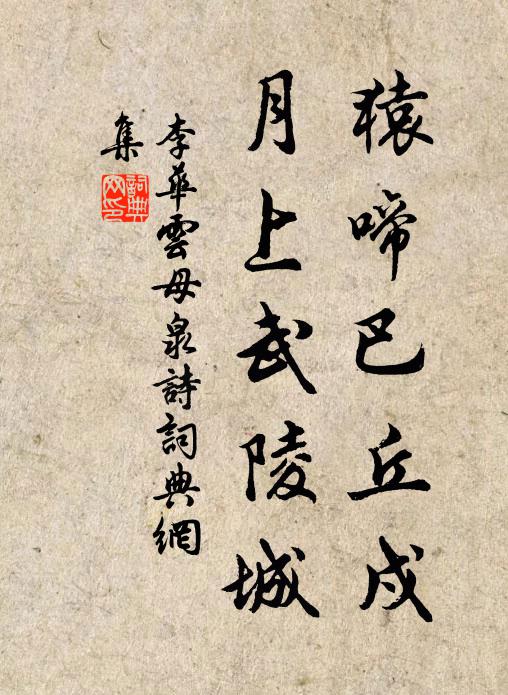 猿啼巴丘戍
月上武陵城
李華雲母泉詩詞典網
集
詞典网印